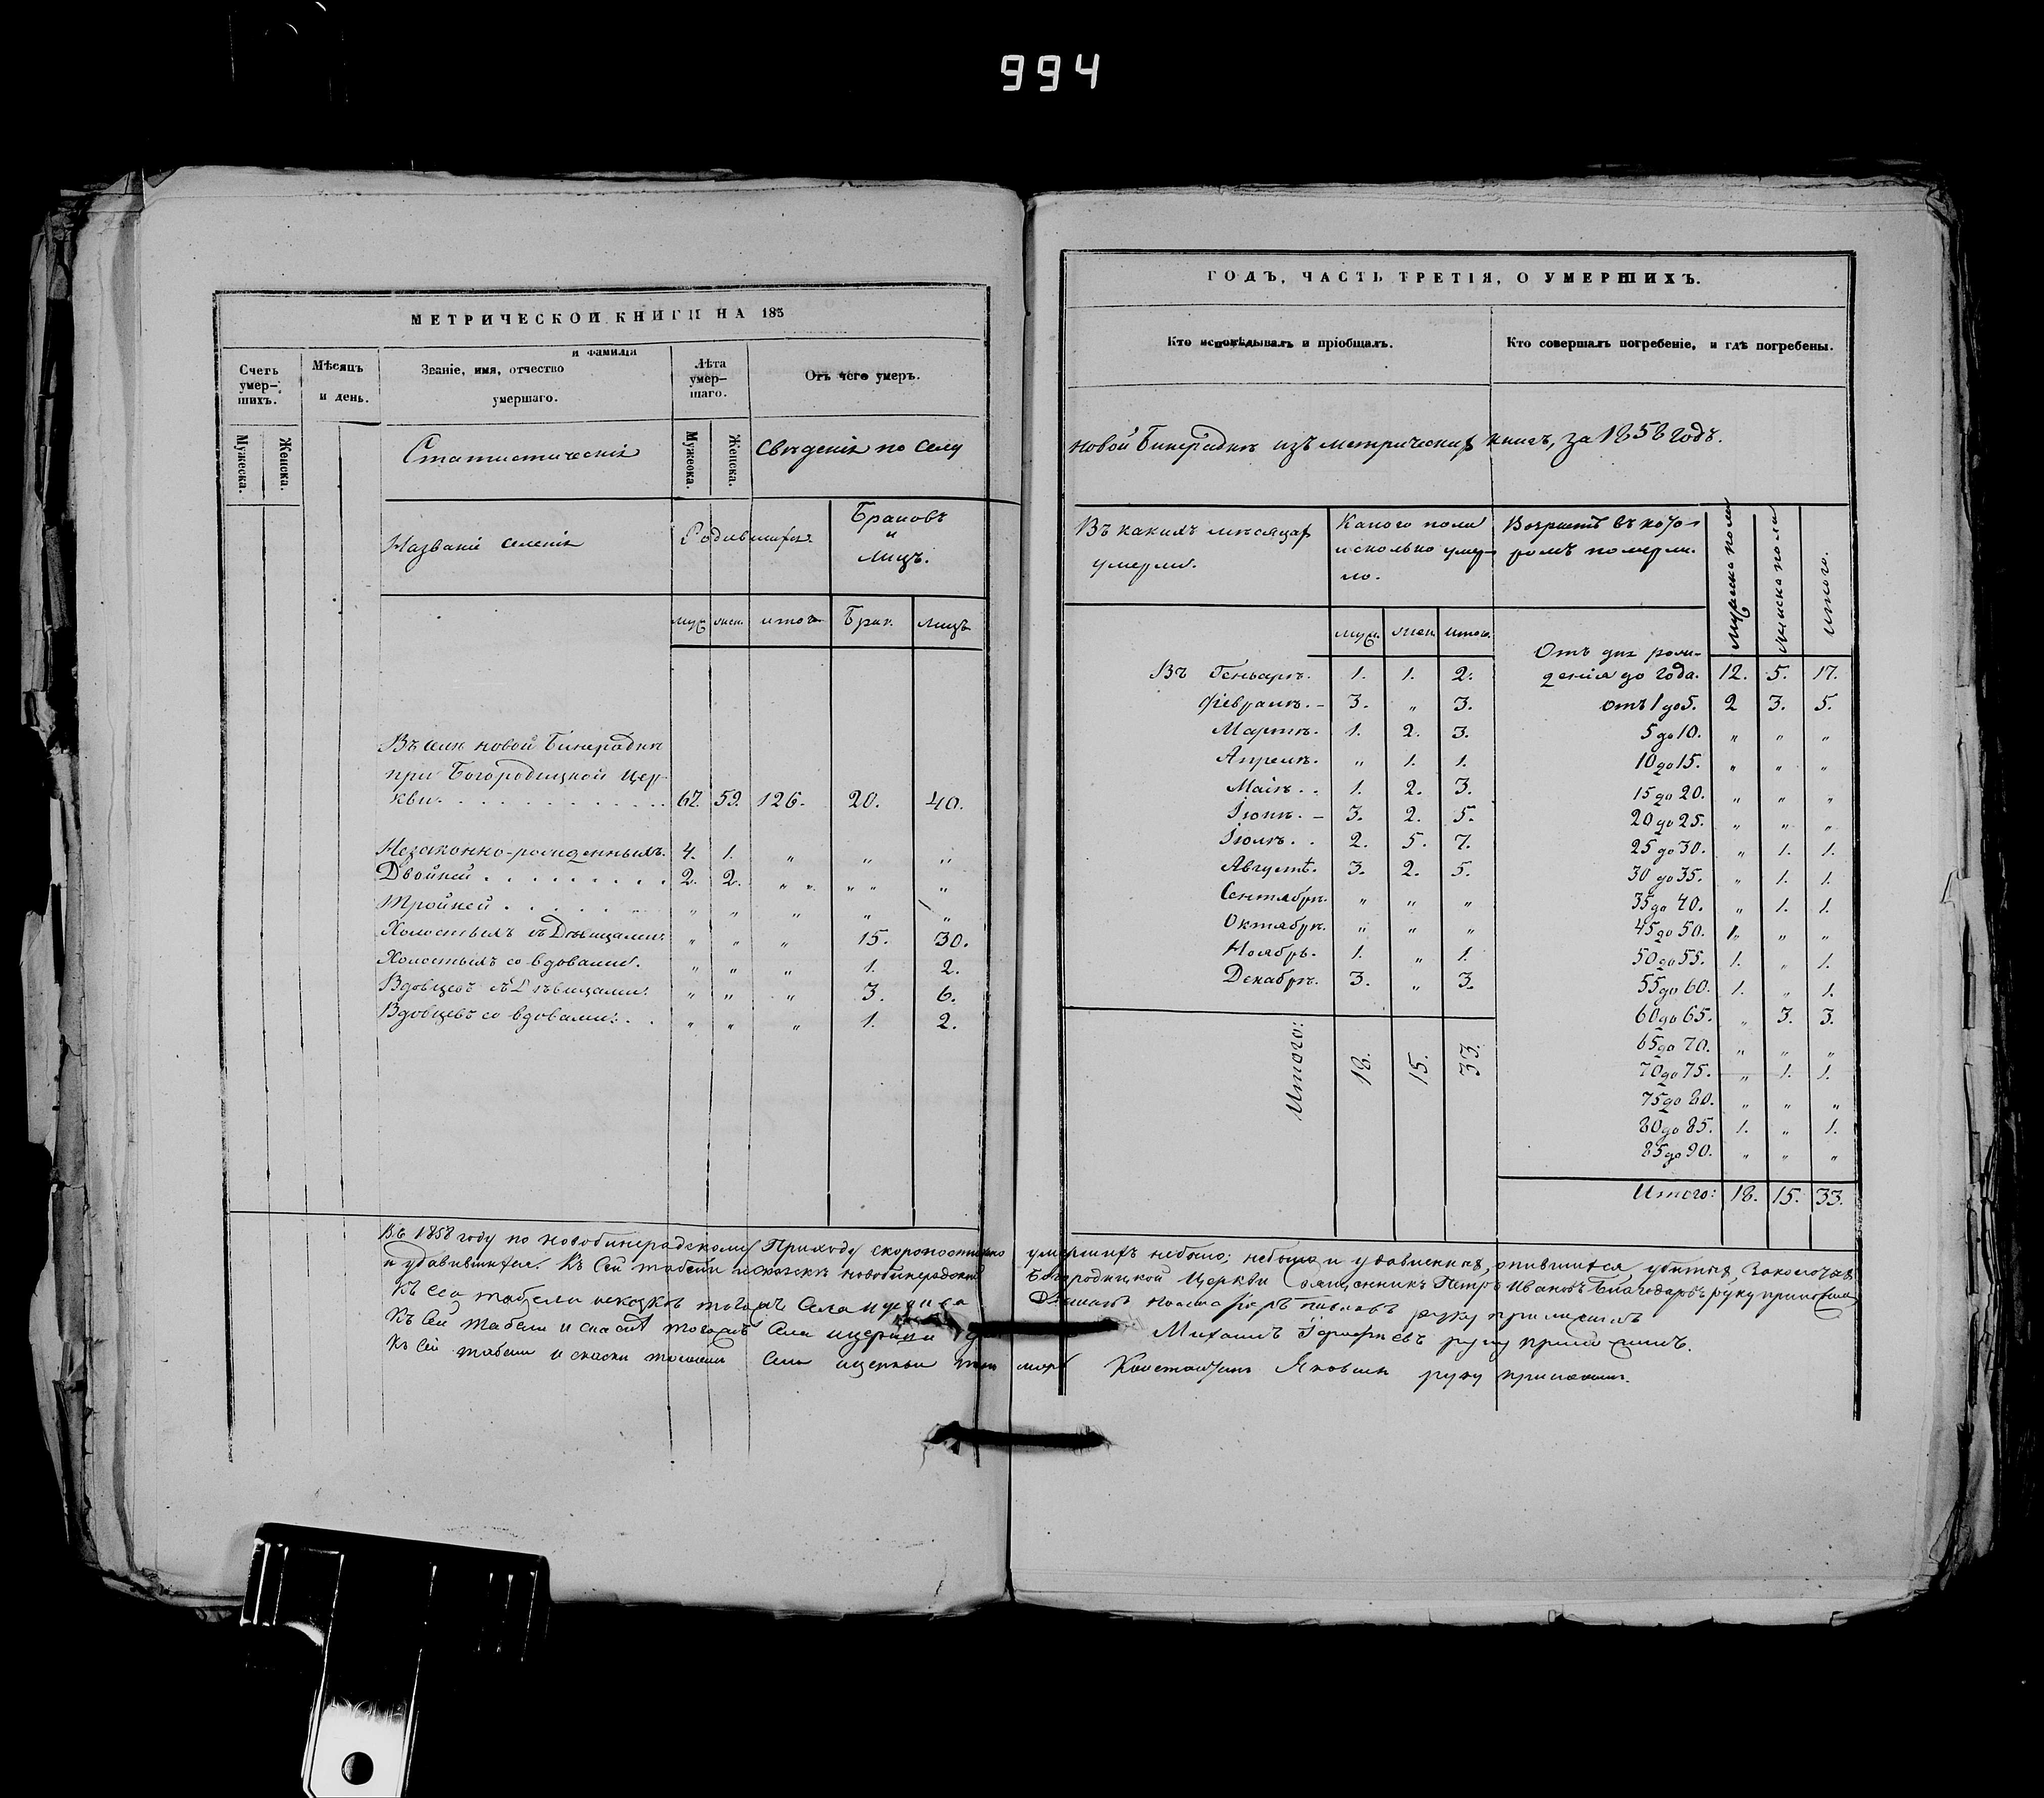 994
МЕТРИЧЕСКОЙ КНИГИ НА 185
Счетъ умер-шихъ.
Мѣсяцъ и день.
и фамилія
Званіе, имя, отчество
умершаго.
Лѣта умер-шаго.
Отъ чего умеръ.
Мужеска. Женска.
Мужеска. Женска.
Статистическія Свѣденія по Селу
Названіе селенія
Родившихся
Браковъ и лицъ.
муж. жен. итого Брак. лицъ
Въ селѣ новой Бинерадкѣ
при Богородицкой Цер-
кви. 67. 59. 126. 20. 40.
Незаконно-рожденныхъ. 4. 1. „ „ „
Двойней . . . . . . . . . 2. 2. „ „ „ „ „
Тройней . . . . . „ „ „ „ „
Холостыхъ съ Дѣвицами. „ „ „ 15. 30.
Холостыхъ со вдовами. „ „ „ 1. 2.
Вдовцевъ съ Дѣвицами. „ „ „ 3. 6.
Вдовцевъ со вдовами. . . „ „ „ 1. 2.
ГОДЪ, ЧАСТЬ ТРЕТІЯ, О УМЕРШИХЪ.
Кто исповѣдывалъ и пріобщалъ.
Кто совершалъ погребеніе, и гдѣ погребены.
новой Бинерадкѣ изъ метрическихъ книгъ, за 1858 годъ.
Въ какихъ мѣсяцах
умерли.
Какого пола
и сколько умер-
ло.
Возрастъ въ кото-
ромъ померли.
мужска пола
женска пола
итого.
муж. жен. итого.
Въ Генварѣ. 1. 1. 2.
Февралѣ. – 3. „ 3.
Мартѣ. 1. 2. 3.
Апрелѣ. „ 1. 1.
Маіѣ . . 1. 2. 3.
Іюнѣ. – 3. 2. 5.
Іюлѣ. . 2. 5. 7.
Августѣ. 3. 2. 5.
Сентябрѣ. „ „ „
Октябрѣ. „ „ „
Ноябрѣ. 1. „ 1.
Декабрѣ. 3. „ 3.
Итого: 18. 15. 33.
Отъ дня рож-
денія до года. 12. 5. 17.
отъ 1 до 5. 2 3. 5.
5 до 10. „ „ „
10 до 15. „ „ „
15 до 20. „ „ „
20 до 25. „ „ „
25 до 30. „ 1. 1.
30 до 35. „ 1. 1.
35 до 40. „ 1. 1.
45 до 50. 1„ „ „
50 до 55. 1. „ 1.
55 до 60. 1. „ 1.
60 до 65. „ 3. 3.
65 до 70. „ „ „
70 до 75. „ 1. 1.
75 до 80. „ „ „
80 до 85. 1. „ 1.
85 до 90. „ „ „
Итого: 18. 15. 33.
Въ 1858 году по новобинерадскому Приходу скоропостижно умершихъ небыло; небыло и удавленных, опившихся убитых,
и удавившихся. Къ сей табели и сказкѣ новобинерадской Богородицкой Церкви Священникъ Петръ Ивановъ Благодаровъ руку приложилъ
Къ сей табели и сказкѣ тогожъ Села руку приложилъ
Къ сей табели и сказкѣ тогожъ Села и церкви Михаилъ руку приложилъ.
Къ сей табели и сказки Села и церкви Константинъ руку приложилъ.